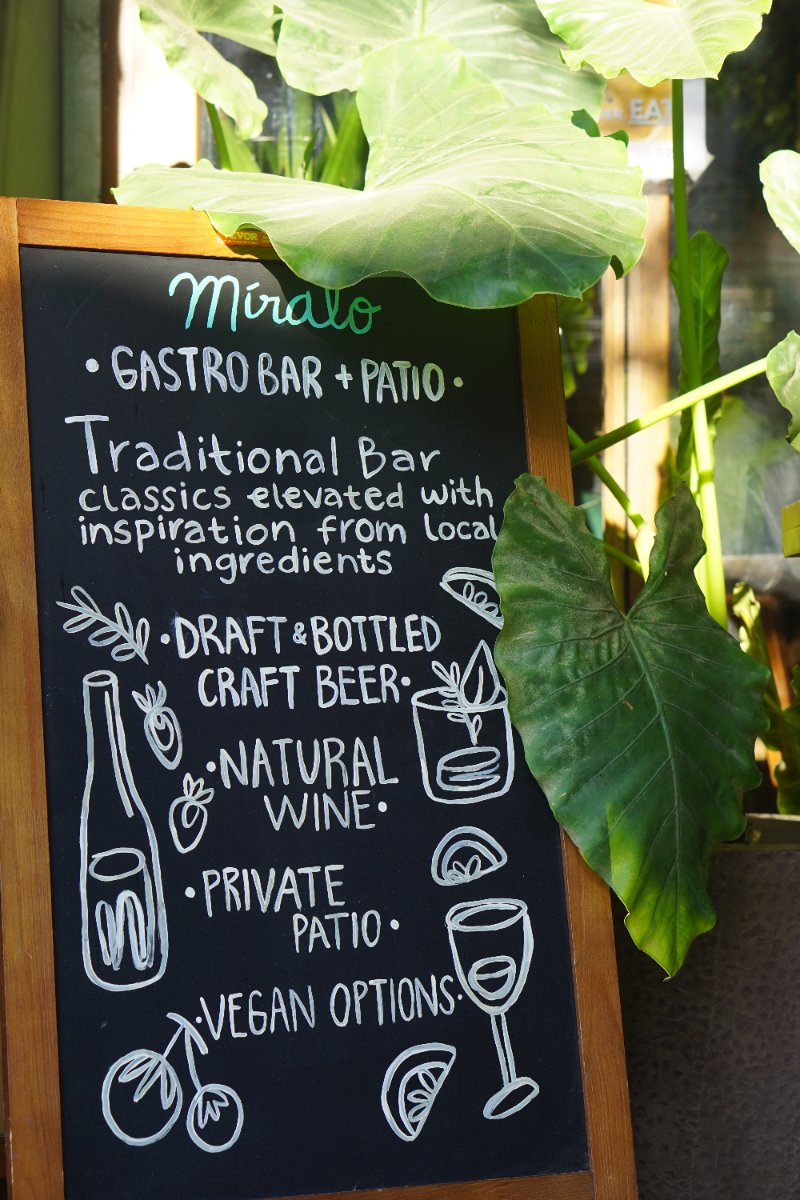 Míralo
• GASTRO BAR + PATIO •
Traditional Bar
classics elevated with
inspiration from local
ingredients
• DRAFT & BOTTLED
CRAFT BEER •
• NATURAL
WINE •
• PRIVATE
PATIO •
• VEGAN OPTIONS •
EAT